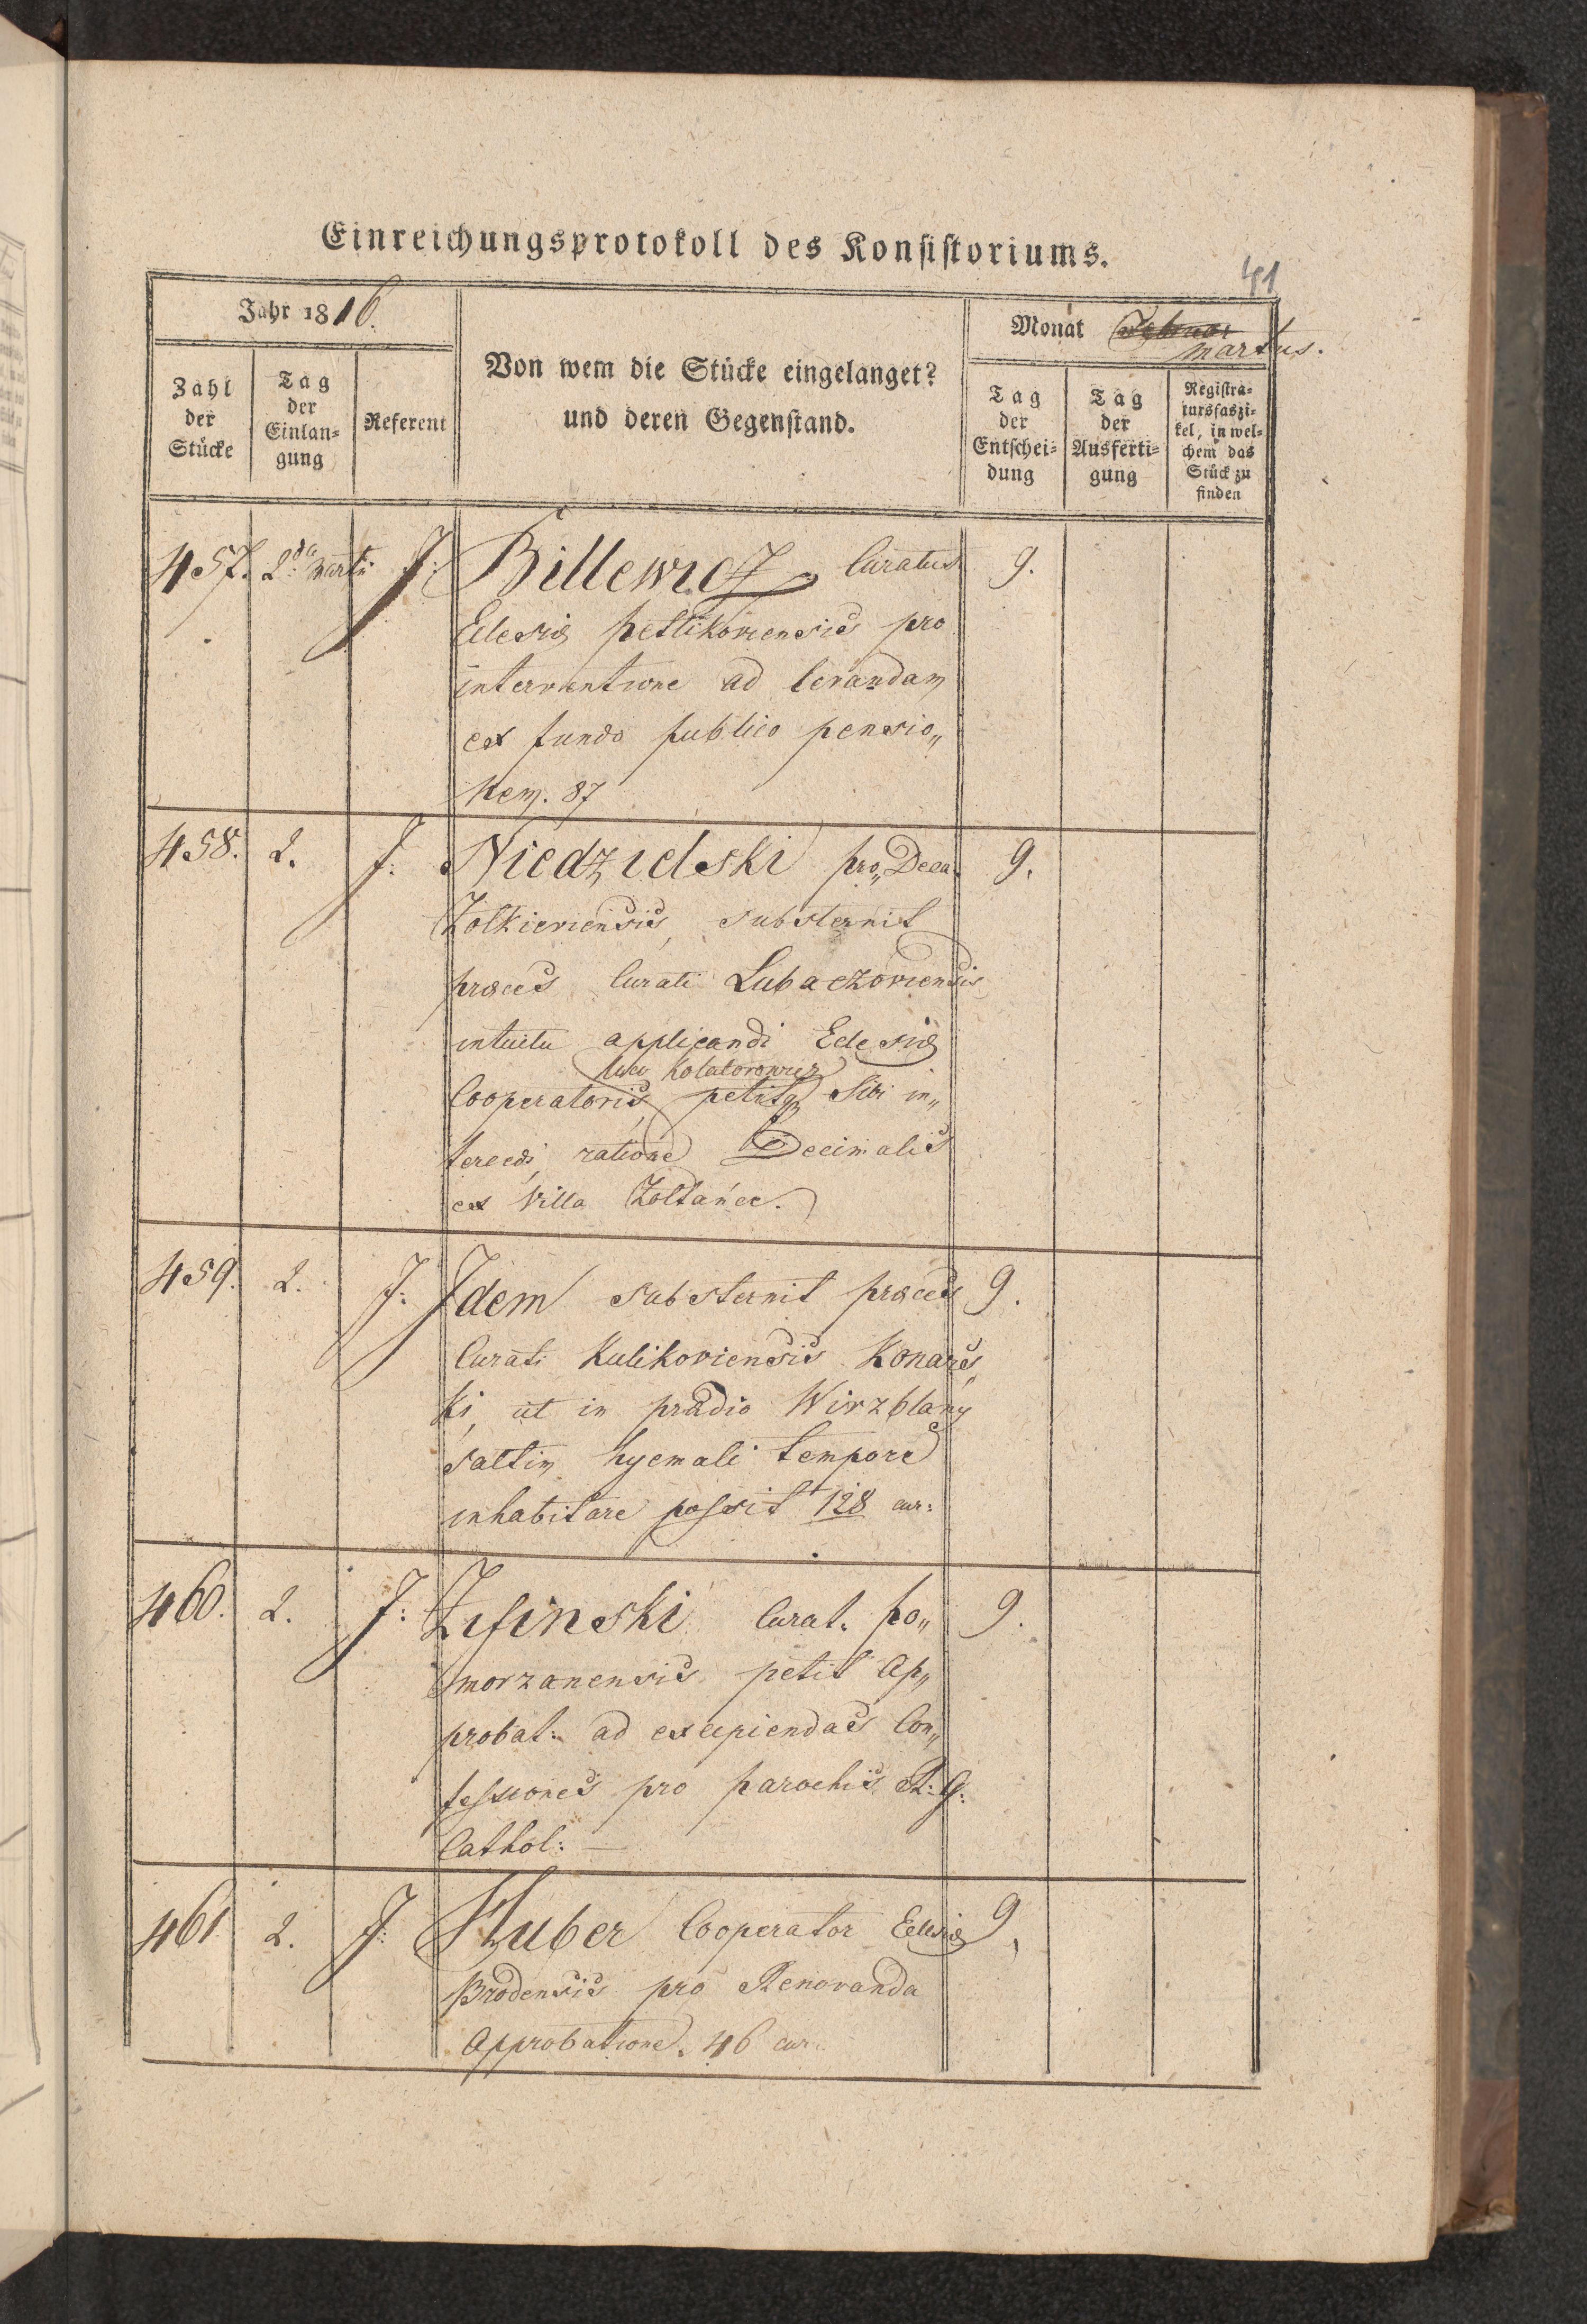 Einreichungsprotokoll des Konsistoriums.
41
Jahr 1816.
Monat Februar
Martius.
Von wem die Stücke eingelanget?
und deren Gegenstand.
Zahl der Stücke
Tag der Einlan-gung
Referent
Tag der Entschei-dung
Tag der Ausferti-gung
Registra-tursfaszi-kel, in wel-chem das Stück zu finden
457. 2da Martii J: Billewicz Curatus 9.
Eclesiæ Petlikoviensis pro
interventione ad levandam
ex fundo publico pensio„
nem. 87
458. 2. J: Niedzielski pro„Deca. 9.
Zolkieviensis, substernit
præces Curati Lubaczoviensis
intuitu applicandi Eclesiæ
Kolatorowicz
Cooperatoris, petitq sibi in„
tercedi, ratione Decimalis
ex Villa Zoltańce.
459. 2. J: Idem substernit præces 9.
Curati Kulikoviensis Konars„
ki, ut in prædio Wirzblany
saltim hyemali tempore
inhabitare possit 128 cur:
460. 2. J: Zifinski Curat. Po„ 9.
morzanensis petit Ap„
probat: ad excipiendas Con„
fessiones pro parochis R: G:
Cathol: —
461 2. J: Huber Cooperator Eclesiæ 9.
Brodensis pro Renovanda
Approbatione. 46 cur: